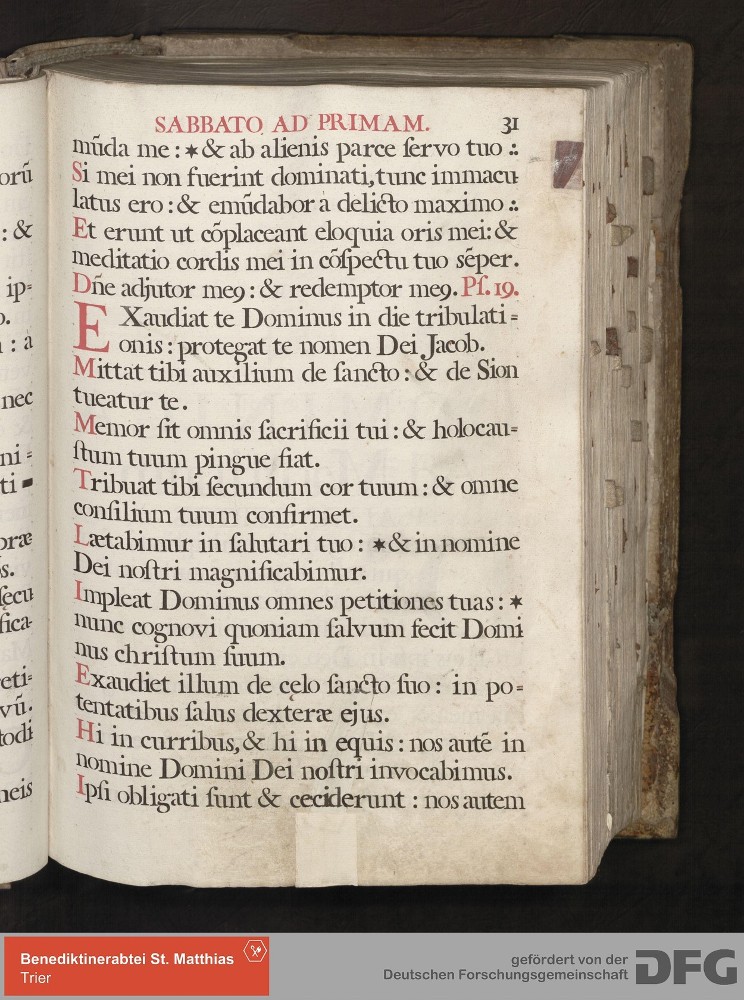 SABBATO AD PRIMAM. 31
mūda me : ✶ & ab alienis parce ſervo tuo :.
Si mei non fuerint dominati, tunc immacu
latus ero : & emūdabor à delicto maximo :.
Et erunt ut cōplaceant eloquia oris mei: &
meditatio cordis mei in cōſpectu tuo sēper.
Dñe adjutor me9 : & redemptor me9. Pſ. 19.
EXaudiat te Dominus in die tribulati=
onis : protegat te nomen Dei Jacob.
Mittat tibi auxilium de ſancto : & de Sion
tueatur te.
Memor ſit omnis ſacrificii tui : & holocau=
ſtum tuum pingue fiat.
Tribuat tibi ſecundum cor tuum : & omne
conſilium tuum confirmet.
Lætabimur in ſalutari tuo : ✶ & in nomine
Dei noſtri magnificabimur.
Impleat Dominus omnes petitiones tuas : ✶
nunc cognovi quoniam ſalvum fecit Domi
nus chriſtum ſuum.
Exaudiet illum de cęlo ſancto ſuo : in po=
tentatibus ſalus dexteræ ejus.
Hi in curribus, & hi in equis : nos autē in
nomine Domini Dei noſtri invocabimus.
Ipſi obligati ſunt & ceciderunt : nos autem
orū
: &
ip=
: a
nec
ni =
ti
præ
s.
ſecu
fica-
reti=
vū.
todi
neis
Benediktinerabtei St. Matthias
Trier
gefördert von der
Deutschen Forschungsgemeinschaft
DFG